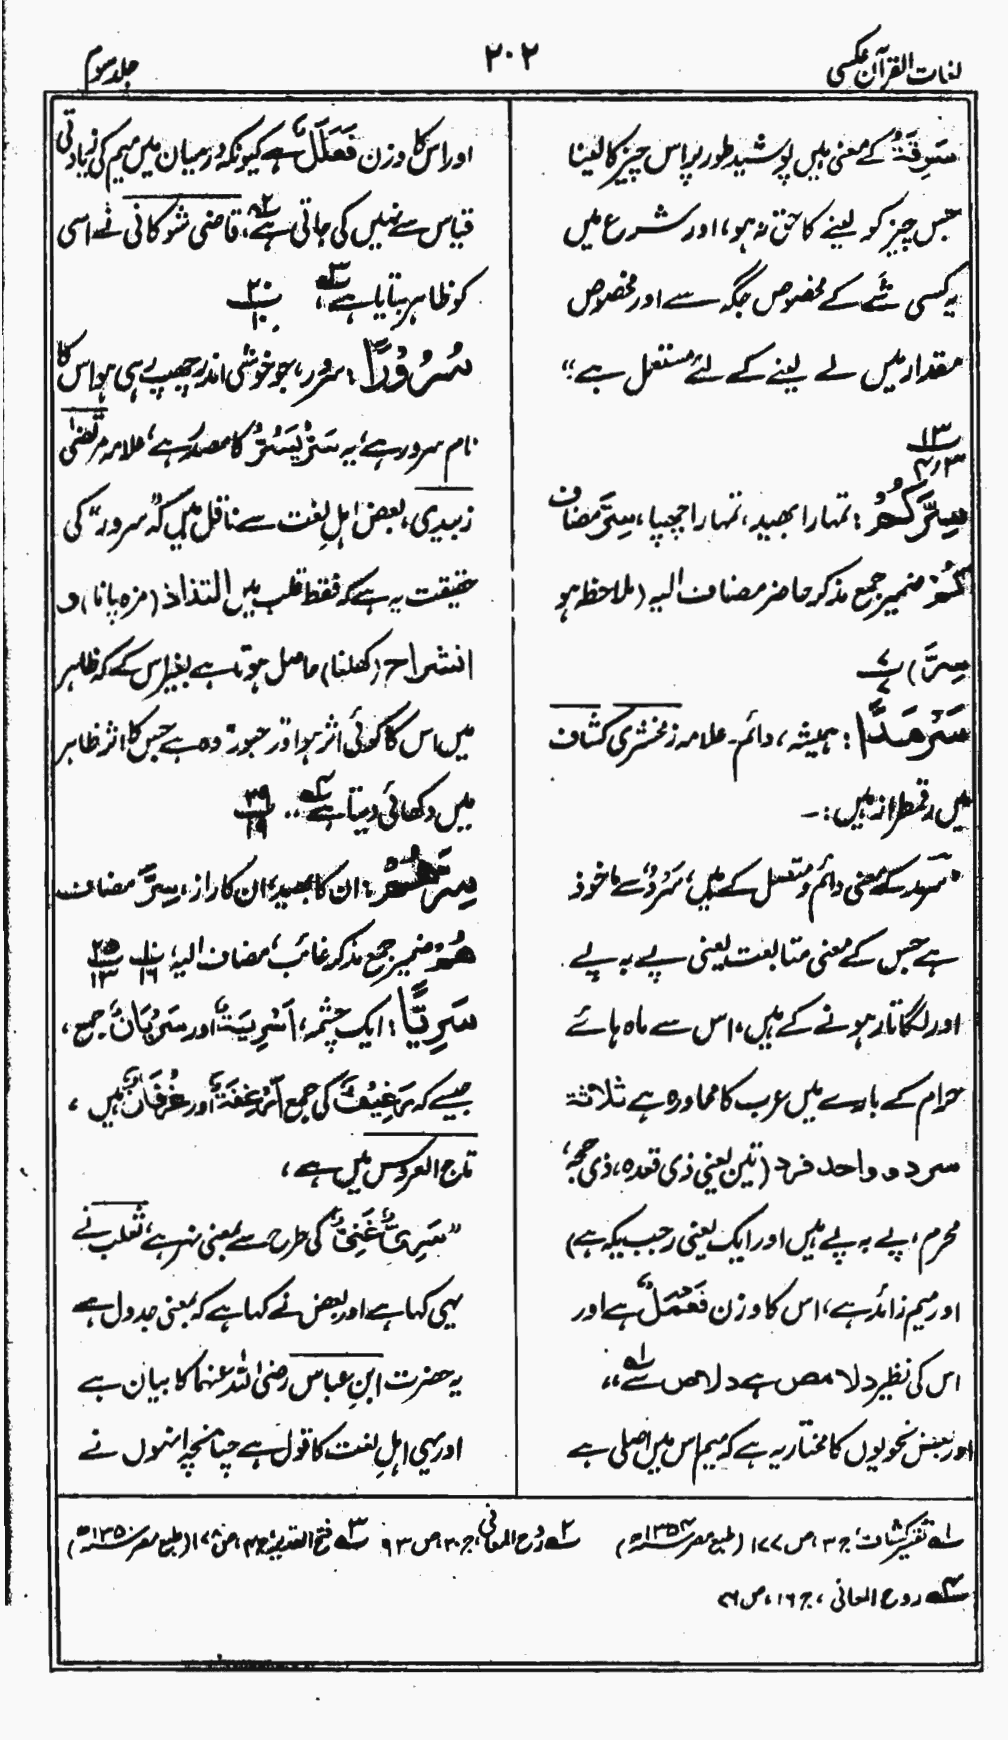 لغات القرآن عکسی
۲۰۲
جلد سوم
سَرِقَۃٌ کے معنی ہیں پوشیدہ طور پر اس چیز کا لینا
جس چیز کو لینے کا حق نہ ہو، اور شرع میں
یہ کسی شے کے مخصوص جگہ سے اور مخصوص
مقدار میں لے لینے کے لئے مستعمل ہے"
۱۳
۴،۳
سِرَّکُمْ: تمہارا بھید، تمہارا چھپا، سِرَّ مضاف
کُمْ ضمیر جمع مذکر حاضر مضاف الیہ (ملاحظہ ہو
سِرًّا) ۷
سَرْمَدًا: ہمیشہ، دائم۔ علامہ زمخشری کشاف
میں رقمطراز ہیں:۔
"سرمد کے معنی دائم و متصل کے ہیں، سَرْدٌ سے ماخوذ
ہے جس کے معنی متابعت یعنی پے بہ پے
اور لگاتار ہونے کے ہیں، اس سے ماہ ہائے
حرام کے بارے میں عرب کا محاورہ ہے ثلاثۃ
سرد و واحد فرد (تین یعنی ذی قعدہ، ذی حجہ،
محرم، پے بہ پے ہیں اور ایک یعنی رجب یکہ ہے)
اور میم زائد ہے، اس کا وزن فَعْمَلٌ ہے اور
اس کی نظیر دلامص ہے دلاص سے ۱؎"
اور بعض نحویوں کا مختار یہ ہے کہ میم اس میں اصلی ہے
اور اس کا وزن فَعْلَلٌ ہے کیونکہ درمیان میں میم کی زیادتی
قیاس سے نہیں کی جاتی ہے ۲؎، قاضی شوکانی نے اسی
کو ظاہر بتایا ہے ۳؎، ۲۰
۱۰
سُرُوْرًا: سرور، جو خوشی اندر چھپے سی ہو اس کا
نام سرور ہے، یہ سَرَّ یَسُرُّ کا مصدر ہے، علامہ مرتضیٰ
زبیدی، بعض اہلِ لغت سے ناقل ہیں کہ "سرور" کی
حقیقت یہ ہے کہ فقط قلب میں التذاذ (مزہ پانا) و
انشراح (کھلنا) حاصل ہوتا ہے بغیر اس کے کہ ظاہر
میں اس کا کوئی اثر ہو اور حبور وہ ہے جس کا اثر ظاہر
میں دکھائی دیتا ہے ۴؎" ۲۹
۱۹
سِرَّھُمْ: ان کا بھید، ان کا راز، سِرَّ مضاف
ھُمْ ضمیر جمع مذکر غائب، مضاف الیہ، ۱۰/۱۶ ۲۵/۱۳
سَرِیًّا: ایک چشمہ، اَسْرِیَۃٌ اور سَرْیَانٌ جمع،
جیسے کہ رَغِیْفٌ کی جمع اَرْغِفَۃٌ اور رُغْفَانٌ ہیں،
تاج العروس میں ہے،
"سَرِیٌّ غَنِیٌّ کی طرح سے بمعنی نہر ہے، ثعلب نے
یہی کہا ہے اور بعض نے کہا ہے کہ بمعنی جدول ہے
یہ حضرت ابنِ عباس رضی اللہ عنہما کا بیان ہے
اور یہی اہلِ لغت کا قول ہے چنانچہ انہوں نے
۱؎ تفسیر کشاف، ج ۳، ص ۱۷۷ (طبع مصر ۱۳۵۴ھ) ۲؎ روح المعانی، ج ۲۰، ص ۹۳ ۳؎ فتح القدیر، ج ۴، ص ۱۷۸ (طبع مصر ۱۳۵۰ھ)
۴؎ روح المعانی، ج ۱۶، ص ۷۶